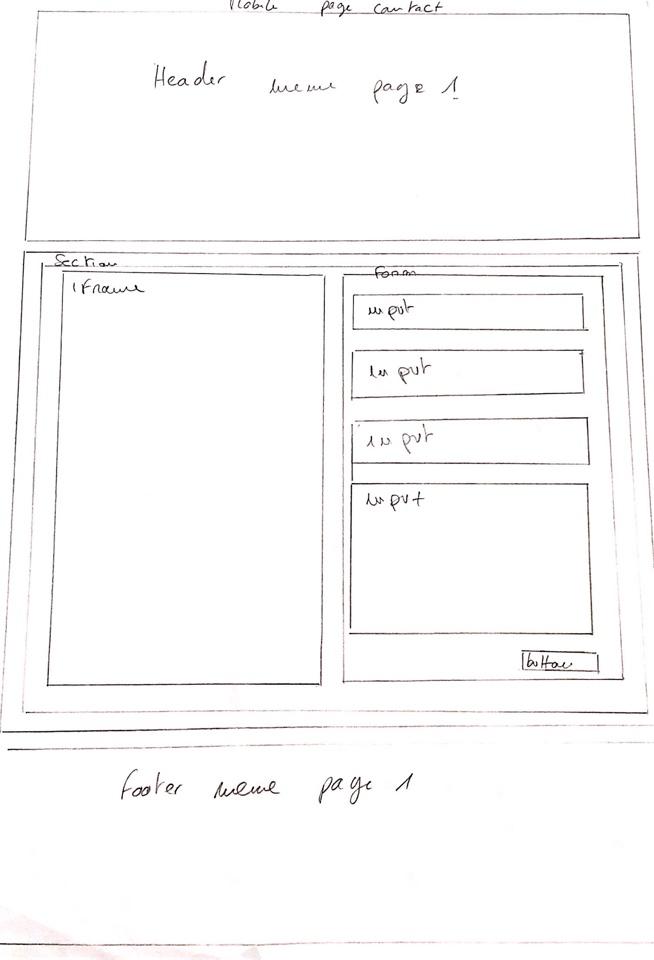 Mobile page contact
Header meme page 1
Section
iFrame
Form
input
Input
input
Input
button
Footer meme page 1